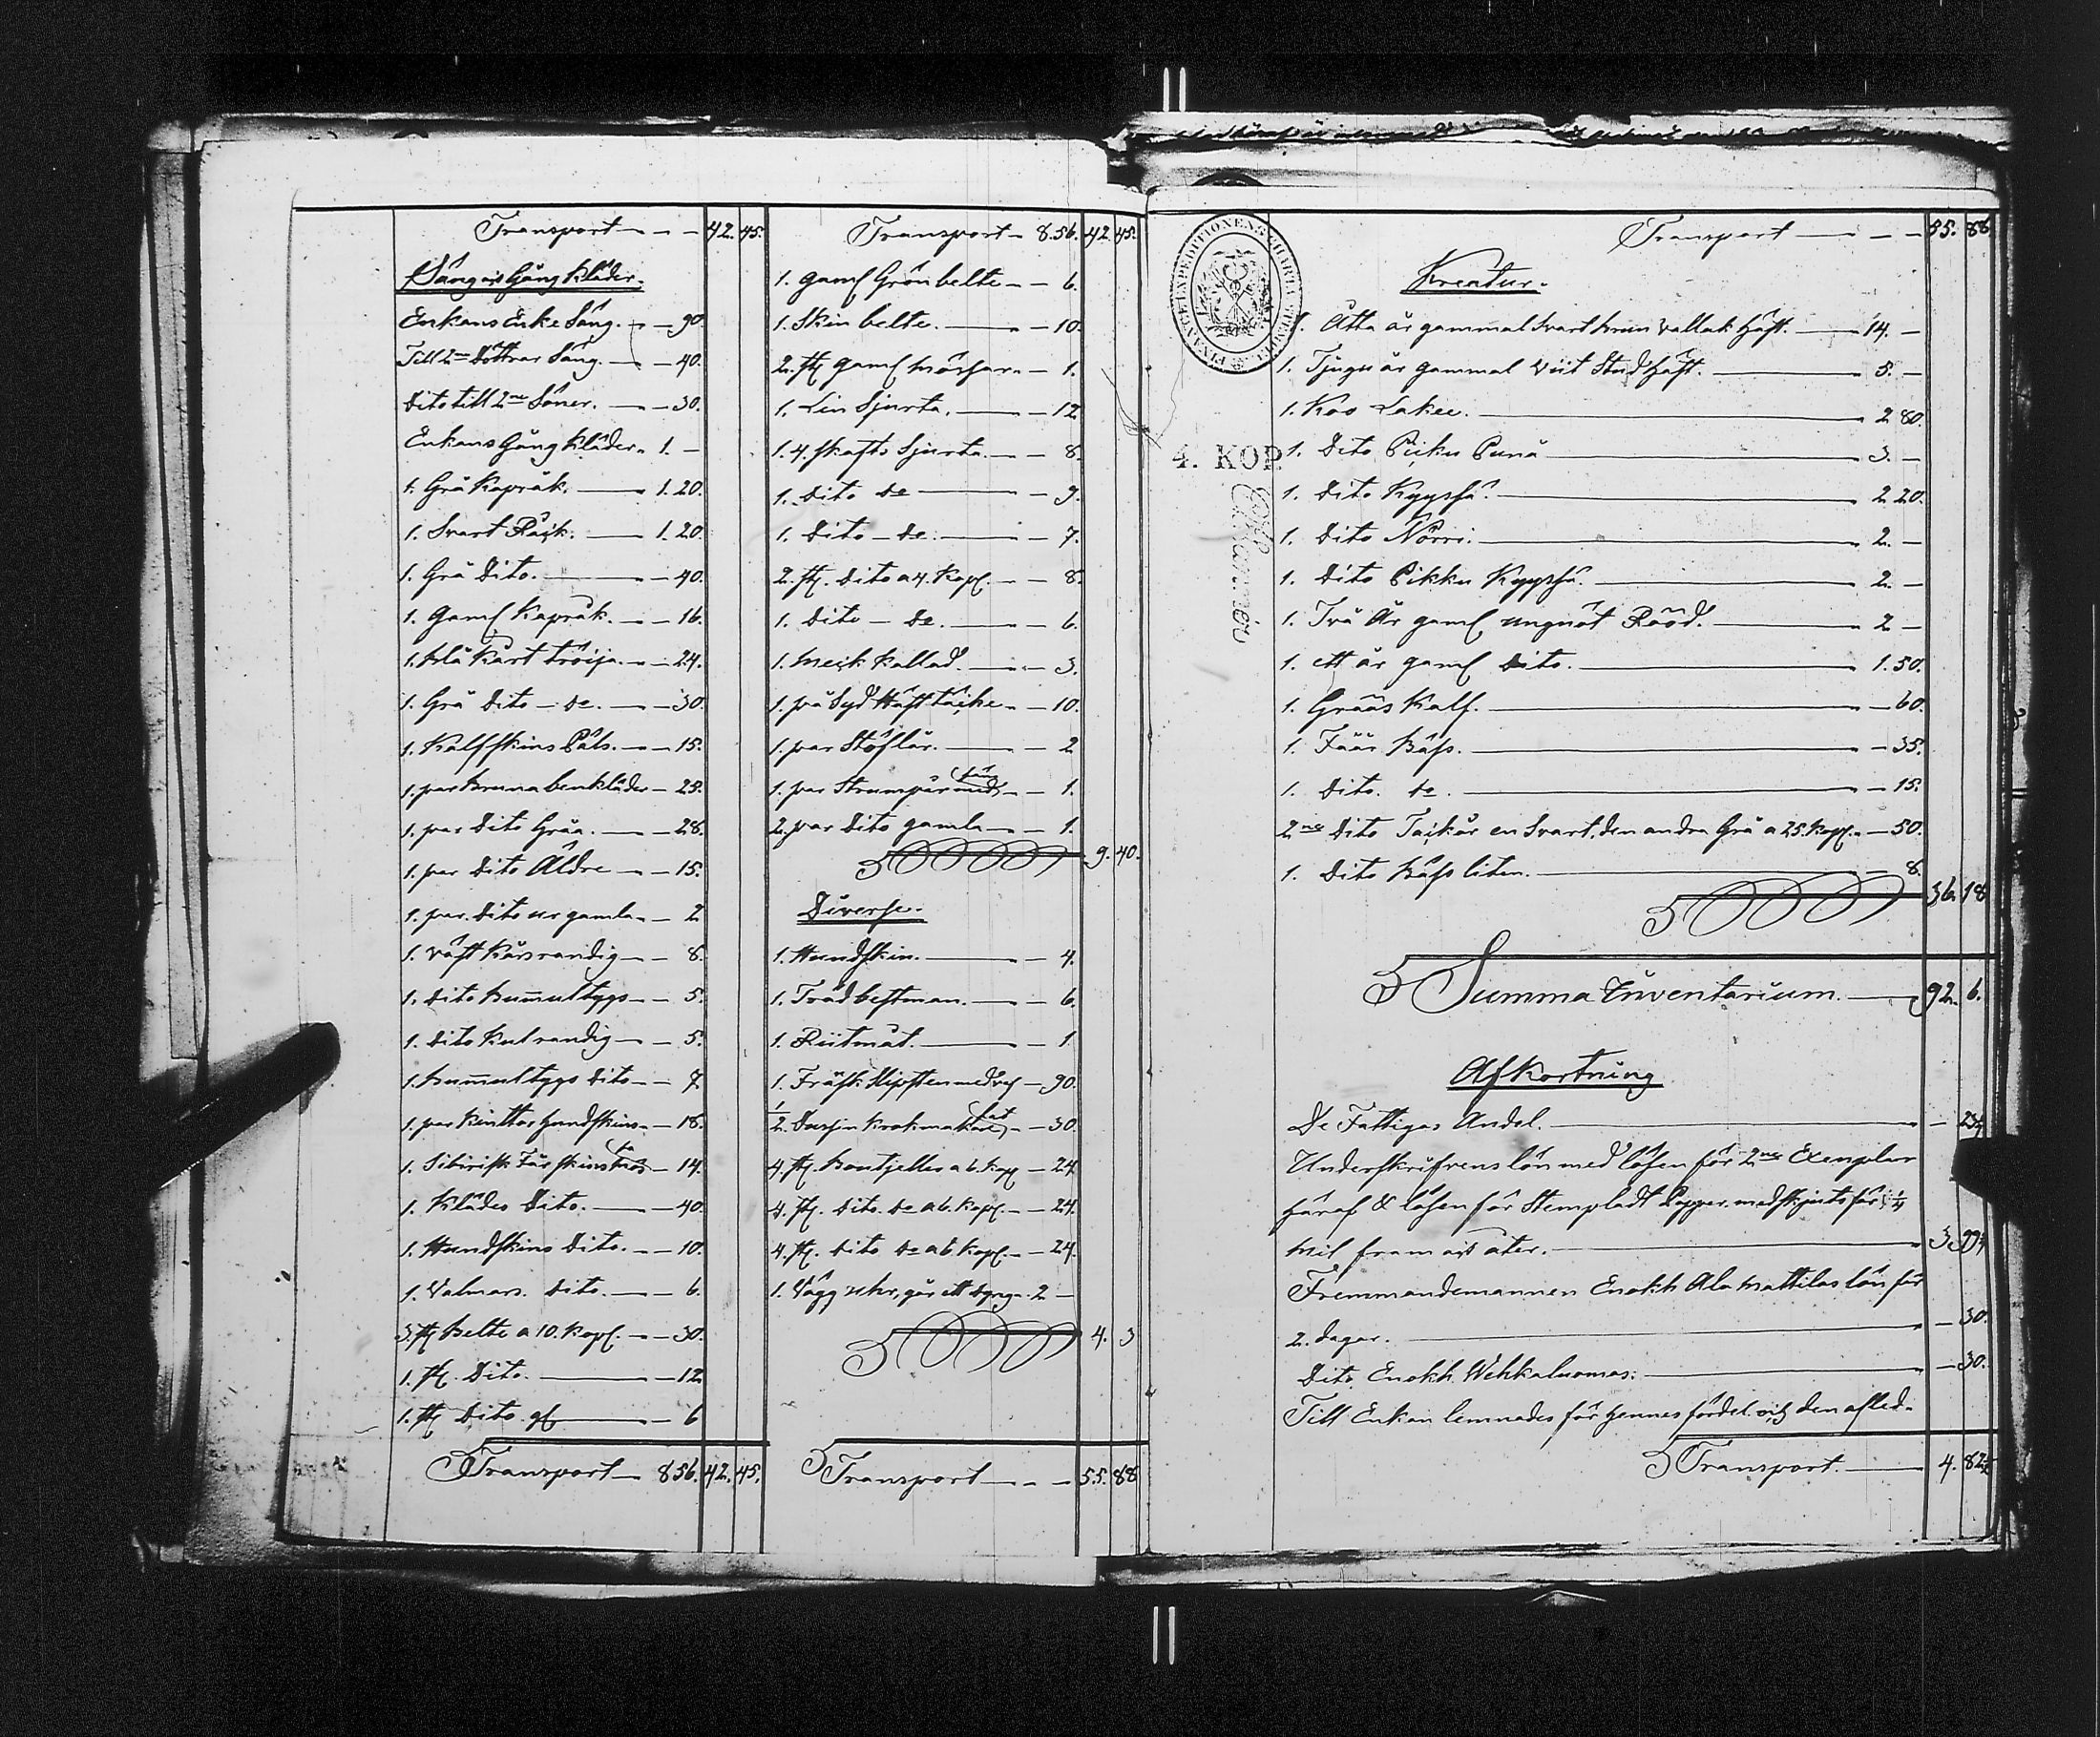 Transport - - - 42. 45.
Säng och Gång Kläder.
Enkans Enke Säng. - - 90.
Till 2ne Döttrar Säng. - 40.
Dito till 2ne Söner. - - 30.
Enkans Gång Kläder. 1. -
1. Grå Kapråk. - 1. 20.
1. Svart Råck. - 1. 20.
1. Grå Dito. - 40.
1. Gaml Kapråk. - 16.
1. blå Kårt tröija. - 24.
1. Grå Dito - de. - 30.
1. Kalfskins Päls. - 15.
1. par bruna benkläder - 25.
1. par Dito Gråa. - 28.
1. par Dito Äldre - - 15.
1. par. Dito ur gamla - - 2.
1. väst Kårsrandig - - 8.
1. Dito bumultygs - - 5.
1. Dito Kulrandig - - 5.
1. bumultygs Dito - - 7.
1. par kinttas hundskins - 18.
1. Sibirisk Får skins - 14.
1. Klädes Dito. - 40.
1. Hundskins Dito. - - 10.
1. Valmars. Dito. - - 6.
3. st belte a 10. Kop. - 30.
1. st. Dito. - 12.
1. st Dito. - 6
Transport - 8 56. 42. 45.
Transport - 8.56. 42. 45.
1. gaml Grön belte - - 6.
1. Skin belte. - 10.
2. st gaml mössar. - 1.
1. Lin Sjurta. - 12
1. 4. skafts Sjurta. - 8.
1. Dito de - 9.
1. Dito - de. - 7.
2. st. Dito a 4. Kop. - - 8.
1. Dito - de. - 6.
1. kallad. - 3.
1. på Syd Häst täcke - - 10.
1. par Stöflar. - 2
1. par Strumpor - 1.
2. par Dito gamla - - 1.
9. 40.
Diverse.
1. Hundskin. - 4.
1. Träd bestman. - 6.
1. Riitmåt. - 1
1. Träsk - 90.
1/2. Dusjin - 30.
4. st. boutjelles a 6. Kop - 24
4. st. Dito. de a 6. Kop. - 24.
4. st. Dito de a 6. Kop. - - 24.
1. Vägg uhr, går ett dygn. 2 -
4. 3
Transport - - - 55. 88
FINANCE EXPEDITIONENS CHARTÆ
4. KOP.
Transport - - - 55. 88.
Kreatur.
1. Åtta år gammal Svart brun Vallak häst. - 14. -
1. Tjugu år gammal Viit Stod häst. - 5. -
1. Koo Lakee. - 2 80.
1. Dito Picku Punä - 3. -
1. Dito Kyyssä. - 2 20.
1. Dito Nörri. - 2. -
1. Dito Pikku Kyyssä. - 2. -
1. Två År gaml ungnöt Rööd. - 2 -
1. ett år gaml Dito. - 1. 50.
1. Grääs Kalf. - 60.
1. Fäär Bäss. - 35.
1. Dito. de. - 15.
2ne Dito Tackor en Svart, den andra Grå a 25. Kop. - 50.
1. Dito Bäss liten. - 8.
36. 18
Summa Inventarium. - 92. 6.
Afkortning
De Fattigas Andel. - 23
Underskrifvens lön med lösen för 2ne Exemplar
häraf & lösen för Stempladt Papper. med skjuts för 1/4
mil fram och åter. - 3.
Fremmandemannen Enokh Ala Mattilas lön för
2. dagar. - 30.
Dito. Enokh. Wehkaluomas. - 30.
Till Enkan lemnades för hennes fördel och den afled-
Transport. - 4. 82